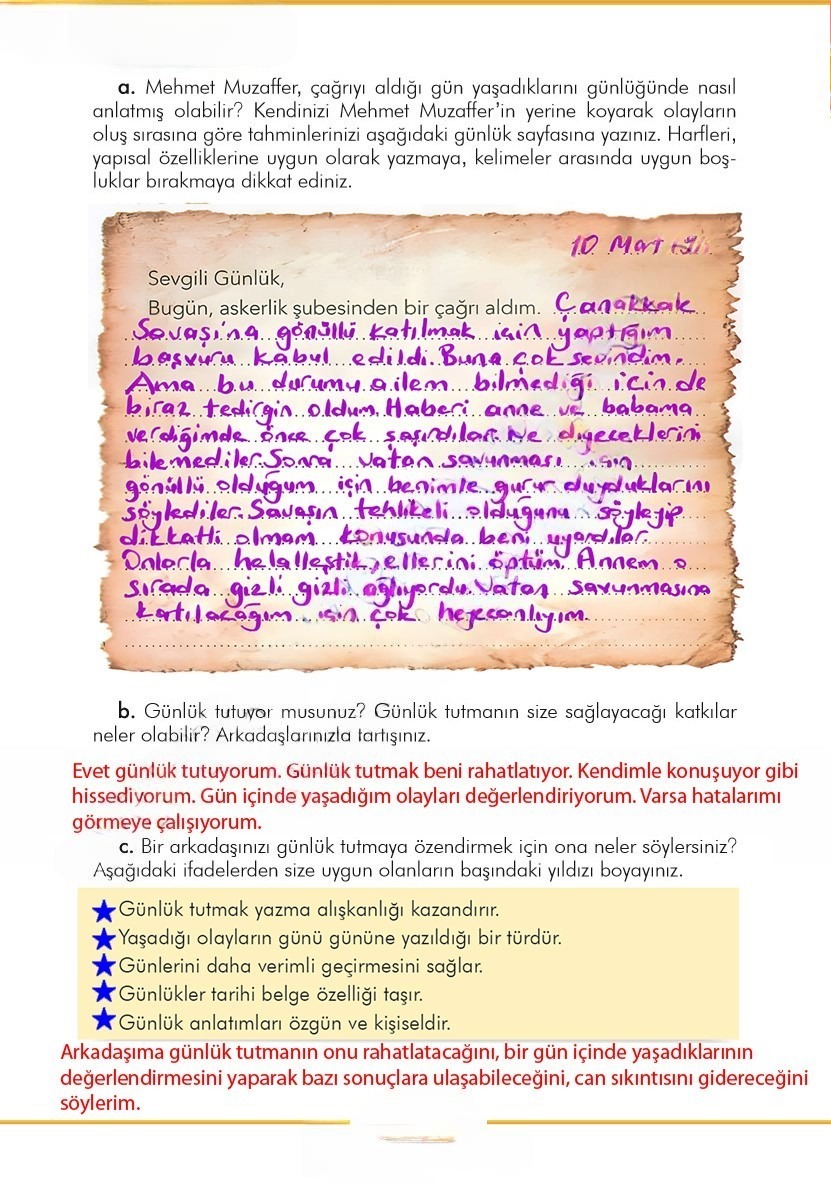 a. Mehmet Muzaffer, çağrıyı aldığı gün yaşadıklarını günlüğünde nasıl
anlatmış olabilir? Kendinizi Mehmet Muzaffer'in yerine koyarak olayların
oluş sırasına göre tahminlerinizi aşağıdaki günlük sayfasına yazınız. Harfleri,
yapısal özelliklerine uygun olarak yazmaya, kelimeler arasında uygun boş-
luklar bırakmaya dikkat ediniz.
10 Mart
Sevgili Günlük,
Bugün, askerlik şubesinden bir çağrı aldım. Çanakkak
Savaşı'na gönüllü katılmak için yaptığım
başvuru kabul edildi. Buna çok sevindim.
Ama bu durumu ailem bilmediği için de
biraz tedirgin oldum. Haberi anne ve babama
verdiğimde önce çok şaşırdılar. Ne diyeceklerini
bilemediler. Sonra vatan savunması için
gönüllü olduğum için benimle gurur duyduklarını
söylediler. Savaşın tehlikeli olduğunu söyleyip
dikkatli olmam konusunda beni uyardılar.
Onlarla helalleştik, ellerini öptüm. Annem o
sırada gizli gizli ağlıyordu. Vatan savunmasına
katılacağım için çok heyecanlıyım.
b. Günlük tutuyor musunuz? Günlük tutmanın size sağlayacağı katkılar
neler olabilir? Arkadaşlarınızla tartışınız.
Evet günlük tutuyorum. Günlük tutmak beni rahatlatıyor. Kendimle konuşuyor gibi
hissediyorum. Gün içinde yaşadığım olayları değerlendiriyorum. Varsa hatalarımı
görmeye çalışıyorum.
c. Bir arkadaşınızı günlük tutmaya özendirmek için ona neler söylersiniz?
Aşağıdaki ifadelerden size uygun olanların başındaki yıldızı boyayınız.
Günlük tutmak yazma alışkanlığı kazandırır.
Yaşadığı olayların günü gününe yazıldığı bir türdür.
Günlerini daha verimli geçirmesini sağlar.
Günlükler tarihi belge özelliği taşır.
Günlük anlatımları özgün ve kişiseldir.
Arkadaşıma günlük tutmanın onu rahatlatacağını, bir gün içinde yaşadıklarının
değerlendirmesini yaparak bazı sonuçlara ulaşabileceğini, can sıkıntısını gidereceğini
söylerim.